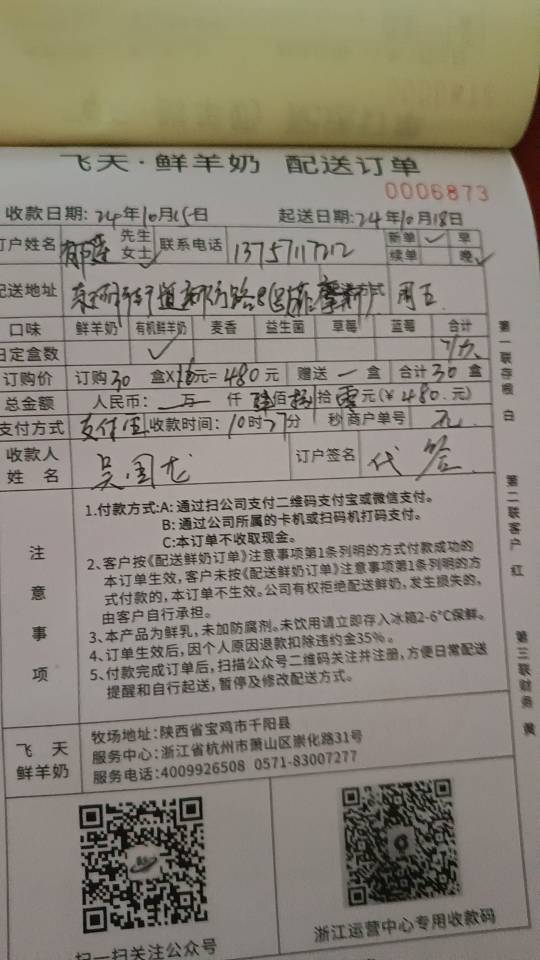 飞天·鲜羊奶 配送订单
0006873
收款日期：24年10月15日 起送日期：24年10月18日
订户姓名 先生 女士 联系电话 13757117212 新单 ✓ 早
续单 晚 ✓
配送地址 方式 周五
口味 鲜羊奶 有机鲜羊奶 麦香 益生菌 草莓 蓝莓 合计
日定盒数 ✓
订购价 订购30盒X16元=480元 赠送 一 盒 合计30盒
总金额 人民币： 万 仟 肆佰捌拾零元(￥480.元)
支付方式 支付宝 收款时间：10时27分 秒 商户单号 无
收款人姓名 吴国龙 订户签名 代签
注意事项
1.付款方式:A：通过扫公司支付二维码支付宝或微信支付。
B：通过公司所属的卡机或扫码机打码支付。
C:本订单不收取现金。
2、客户按《配送鲜奶订单》注意事项第1条列明的方式付款成功的
本订单生效，客户未按《配送鲜奶订单》注意事项第1条列明的方
式付款的，本订单不生效。公司有权拒绝配送鲜奶，发生损失的，
由客户自行承担。
3、本产品为鲜乳，未加防腐剂。未饮用请立即存入冰箱2-6℃保鲜。
4、订单生效后，因个人原因退款扣除违约金35%。
5、付款完成订单后，扫描公众号二维码关注并注册，方便日常配送
提醒和自行起送，暂停及修改配送方式。
飞天
鲜羊奶
牧场地址：陕西省宝鸡市千阳县
服务中心：浙江省杭州市萧山区崇化路31号
服务电话：4009926508 0571-83007277
扫一扫关注公众号
浙江运营中心专用收款码
第一联存根 白
第二联客户 红
第三联财务 黄